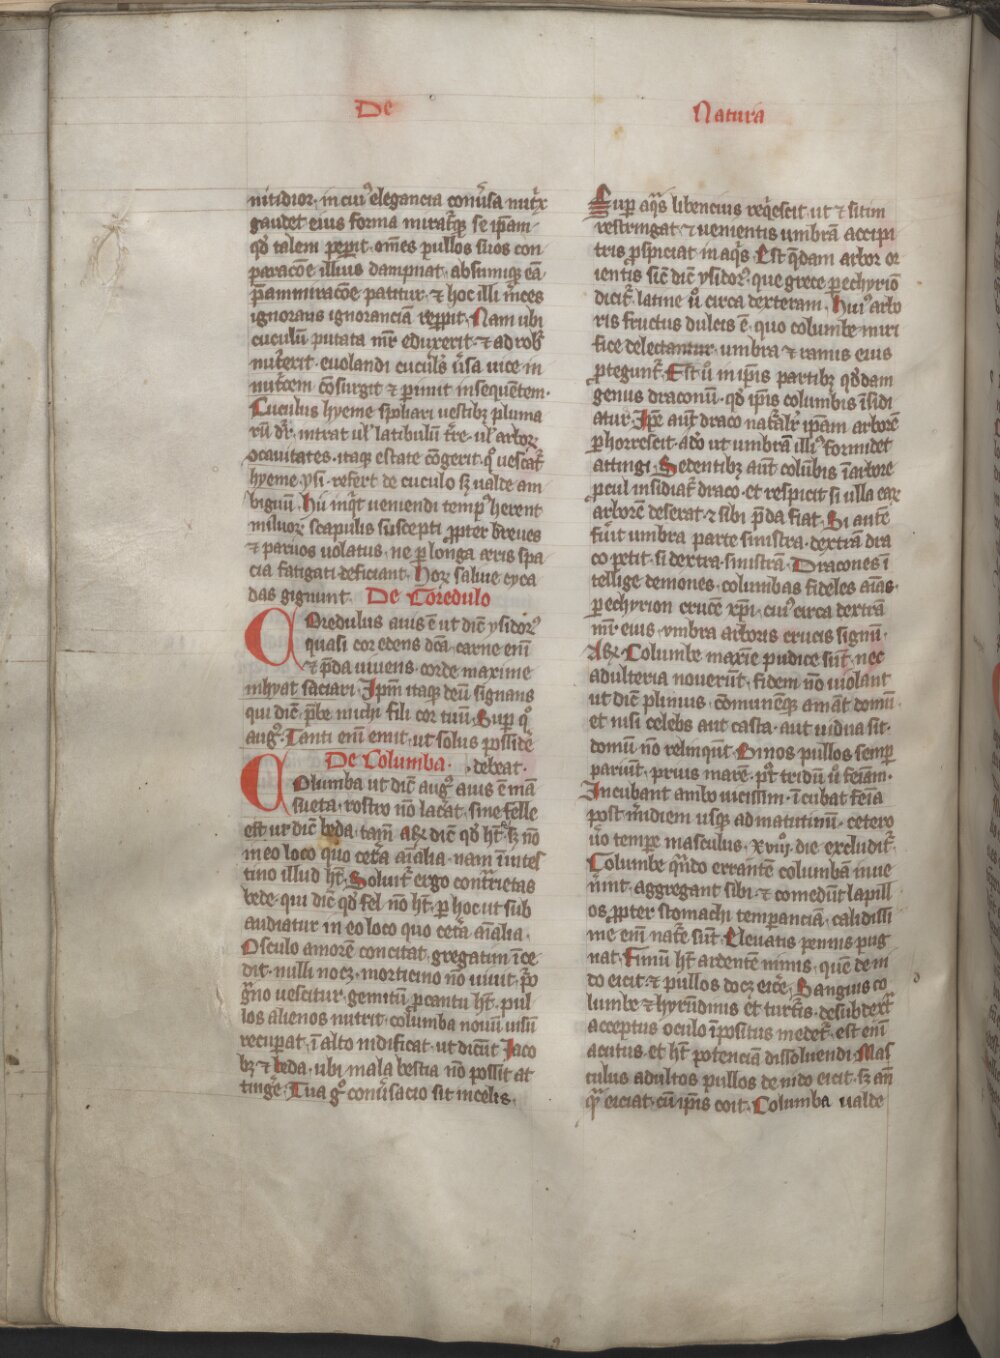 De
Natura
nitidior. in cui᷒ elegancia conũsa nut͛x
gaudet eius forma mirat͛qꝫ se ip̃am
qđ talem peꝑit. om̃es pullos suos con
paracõe illius dampnat. absumiqꝫ eã
p̃ammiracõe patitur. ⁊ hoc illi m̃ces
ignorans ignoranciã reꝑꝑit. Nam ubi
cuculũ putata mr̃ eduxerit. ⁊ ad rob᷒
nut͛erit. euolandi cucul᷒s ũsa uice in
nut͛cem cõsurgit ⁊ ꝑimit insequẽtem.
Cuculus hyeme spoliari uestibꝫ pluma
rũ dr̃. intrat ul̃ latibulũ t͛re. ul̃ arborꝝ
ocauitates. itaqꝫ estate cõgerit. q̊ uescat͛
hyeme. ysi. refert de cuculo sꝫ ualde am
biguũ. Hii inq͛t ueniendi temp᷒ herent
miluorꝝ scapulis suscepti ꝓpter breues
⁊ paruos uolatus. ne ꝑ longa aeris spa
cia fatigati deficiant. Horꝝ saliue cyca
das gignunt. De Coredulo
COredulus auis ẽ ut dič ysidor᷒
quasi cor edens dc̃a. carne eni᷒
⁊ p̃da uiuens. corde maxime
inhyat saciari. Ip̃m itaqꝫ deũ signans
qui dič. p̃be michi fili cor tuũ. Suꝑ q̊
aug᷒. Tanti eni᷒ emit. ut solus possidẽ
De Columba. debeat.
COlumba ut dič aug᷒. auis ẽ mã
sueta. rostro nõ lac͛at. sine felle
est ut dič beda. tam̃ Ar̃ dič qđ ht͛. sꝫ nõ
in eo loco quo cet͛a aĩalia. nam ĩ intes
tino illud ht͛. Soluit͛ ergo cont͛rietas
bede. qui dič qđ fel nõ ht͛. ꝑ hoc ut sub
audiatur in eo loco quo cet͛a aĩalia.
Osculo amorẽ concitat. gregatim ĩce
dit. nulli nocꝫ. morticino nõ uiuit. p̃o
g͛no uescitur. gemitũ ꝓ cantu ht͛. pul
los alienos nutrit. columba nouũ uisũ
recuꝑat. ĩ alto nidificat. ut dicũt Iaco
bꝫ ⁊ beda. ubi mala bestia nõ possit at
tinge᷒. Tua g̊ conũsacio sit in celis.
Suꝑ aq͛s libencius req͛escit. ut ⁊ sitim
restringat. ⁊ uenientis umbrã accipi
tris ꝓspiciat in aq͛s. Est q͛dam arbor or
ientis sič dič ysidor᷒. que grece ꝑechyriõ
dicit͛. latine ũ circa dexteram. Hui᷒ arbo
ris fructus dulcis ẽ. quo columbe miri
fice delectantur. umbra ⁊ ramis eius
ꝓtegunt͛. Est ũ in ip̃is partibꝫ qđdam
genus draconũ. qđ ip̃is columbis ĩsidi
atur. Ip̃e aut̃ draco nat͛alr̃ ip̃am arborẽ
ꝑhorrescit. adeo ut umbrã illi᷒ formidet
attingi. Sedentibꝫ aut̃ colũbis ĩ arbore
ꝓcul insidiat͛ draco. et respicit si ulla earꝝ
arborẽ deserat. ⁊ sibi p̃da fiat. Si autẽ
fũit umbra parte sinistra. dextrã dra
co petit. si dextra. sinistrã. Dracones ĩ
tellige demones. columbas fideles aĩas.
ꝑechyrion crucẽ xp̃i. cui᷒ circa dextrã
mr̃ eius. vmbra arboris crucis signũ.
Ar̃. Columbe maxĩe pudice sũt. nec
adulteria nouerũt. fidem nõ uiolant
ut dič plinius. cõmunẽqꝫ amãt domũ.
et nisi celebs aut casta. aut uidua sit.
domũ nõ relinqũt. Binos pullos semꝑ
pariũt. prius marẽ. pt͛ triduũ ũ feĩam.
Incubant ambo uicissim. ĩcubat feĩa
post m͛idiem usqꝫ ad matutinũ. cetero
ũo temꝑe masculus. xviij. die excludit͛.
Columbe q͛ndo errantẽ columbã inue
ũint. aggregant sibi. ⁊ comedũt lapill
os ꝓpter stomachi temꝑanciã. calidissi
me eni᷒ nat͛e sũt. Eleuatis pennis pug
nat. Fimũ ht͛ ardentẽ nimis. quẽ de ni
do eicit. ⁊ pullos docꝫ eic͛e. Sanguis co
lumbe ⁊ hyrũdinis et turt͛is. de sub dext͛
acceptus oculo ĩpositus medet͛. est eni᷒
acutus. et ht͛ potenciã dissoluendi. Mas
culus adultos pullos de nido eicit. sꝫ añ
q͛ eiciat. cũ ip̃is coit. Columba ualde